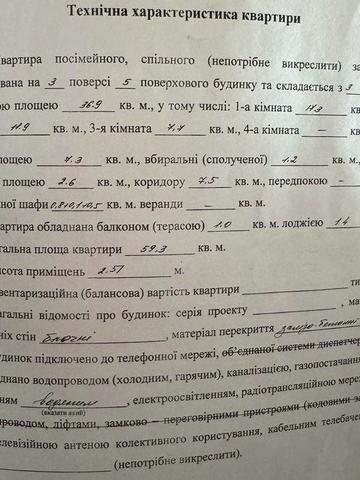 Технічна характеристика квартири
Квартира посімейного, спільного (непотрібне викреслити) за
вана на 3 поверсі 5 поверхового будинку та складається з 3
ою площею 36.9 кв. м., у тому числі: 1-а кімната
11.9 кв. м., 3-я кімната 7.7 кв. м., 4-а кімната — кв
площею 7.3 кв. м., вбиральні (сполученої) 1.2 кв. м.,
площею 2.6 кв. м., коридору 7.5 кв. м., передпокою –
ної шафи кв. м. веранди – кв. м.
артира обладнана балконом (терасою) 1.0 кв. м. лоджією 1.4
гальна площа квартири 59.3 кв. м.
исота приміщень 2.57 м.
вентаризаційна (балансова) вартість квартири ти
агальні відомості про будинок: серія проекту , ма
ніх стін блочні , матеріал перекриття залізо-бетонні
удинок підключено до телефонної мережі, об'єднаної системи диспетчер
днано водопроводом (холодним, гарячим), каналізацією, газопостачання
ням водяним , електроосвітленням, радіотрансляційною мере
(вказати який)
проводом, ліфтами, замково – переговорними пристроями (кодовими за
телевізійною антеною колективного користування, кабельним телебаче
(непотрібне викреслити).